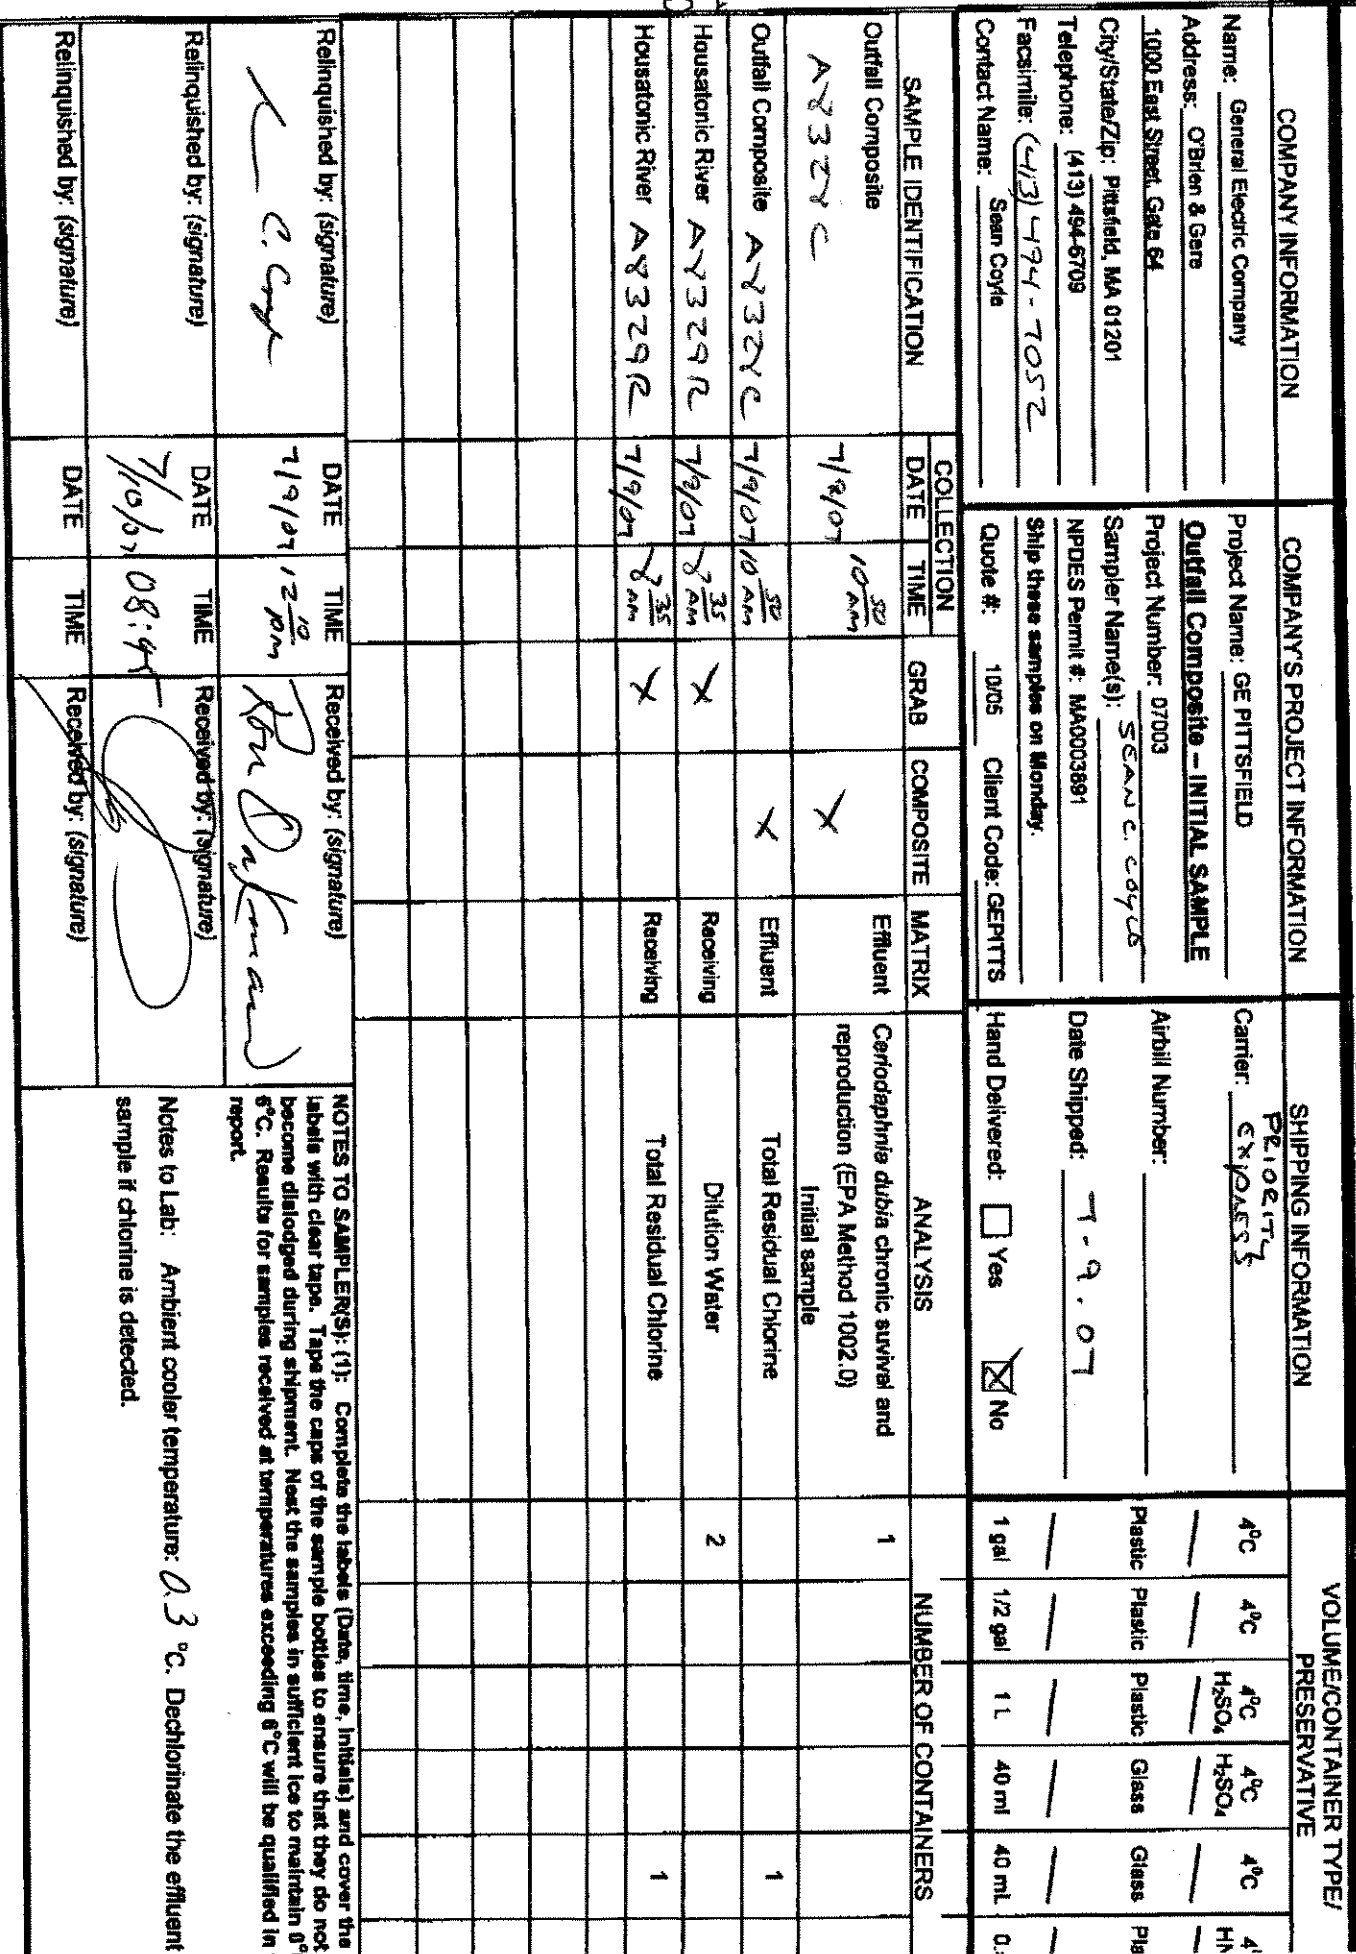 COMPANY INFORMATION
Name: General Electric Company
Address: O'Brien & Gere
1000 East Street, Gate 64
City/State/Zip: Pittsfield, MA 01201
Telephone: (413) 494-6709
Facsimile: (413) 494-7052
Contact Name: Sean Coyle
COMPANY'S PROJECT INFORMATION
Project Name: GE PITTSFIELD
Outfall Composite – INITIAL SAMPLE
Project Number: 07003
Sampler Name(s): SEAN C. COYLE
NPDES Permit #: MA0003891
Ship these samples on Monday.
Quote #: 10/05 Client Code: GEPITTS
SHIPPING INFORMATION
PRIORITY
Carrier: EXPRESS
Airbill Number:
Date Shipped: 7-9-07
Hand Delivered: Yes No
VOLUME/CONTAINER TYPE/
PRESERVATIVE
4°C 4°C 4°C 4°C 4°C
H2SO4 H2SO4
Plastic Plastic Plastic Glass Glass
1 gal 1/2 gal 1 L 40 ml 40 mL
SAMPLE IDENTIFICATION
COLLECTION
DATE TIME
GRAB COMPOSITE MATRIX ANALYSIS NUMBER OF CONTAINERS
Outfall Composite
A8328C 7/9/07 10 50 AM X Effluent
Ceriodaphnia dubia chronic suvival and
reproduction (EPA Method 1002.0)
Initial sample
1
Outfall Composite A8328C 7/9/07 10 50 AM X Effluent Total Residual Chlorine 1
Housatonic River A8329R 7/9/07 8 35 AM X Receiving Dilution Water 2
Housatonic River A8329R 7/9/07 8 35 AM X Receiving Total Residual Chlorine 1
Relinquished by: (signature) DATE TIME Received by: (signature)
C. Coyle 7/9/07 12 10 pm Ron
Relinquished by: (signature) DATE TIME Received by: (signature)
7/10/07 08:45
Relinquished by: (signature) DATE TIME Received by: (signature)
NOTES TO SAMPLER(S): (1): Complete the labels (Date, time, initials) and cover the
labels with clear tape. Tape the caps of the sample bottles to ensure that they do not
become dislodged during shipment. Nest the samples in sufficient ice to maintain 0°
6°C. Results for samples received at temperatures exceeding 6°C will be qualified in
report.
Notes to Lab: Ambient cooler temperature: 0.3 °C. Dechlorinate the effluent
sample if chlorine is detected.